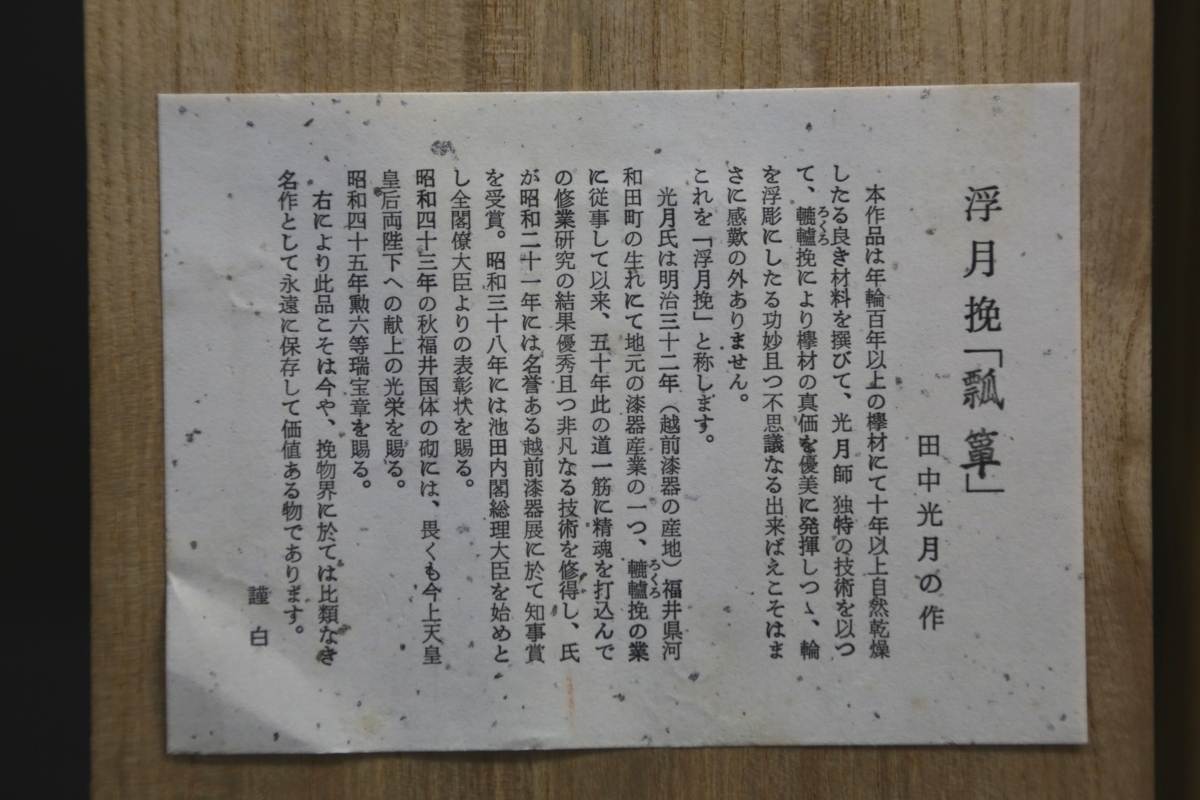 浮月挽「瓢箪」
田中光月の作
本作品は年輪百年以上の欅材にて十年以上自然乾燥
したる良き材料を撰びて、光月師 独特の技術を以つ
て、轆轤挽により欅材の真価を優美に発揮しつゝ、輪
ろくろ
を浮彫にしたる功妙且つ不思議なる出来ばえこそはま
さに感歎の外ありません。
これを「浮月挽」と称します。
光月氏は明治三十二年（越前漆器の産地）福井県河
和田町の生れにて地元の漆器産業の一つ、轆轤挽の業
ろくろ
に従事して以来、五十年此の道一筋に精魂を打込んで
の修業研究の結果優秀且つ非凡なる技術を修得し、氏
が昭和二十一年には名誉ある越前漆器展に於て知事賞
を受賞。昭和三十八年には池田内閣総理大臣を始めと
し全閣僚大臣よりの表彰状を賜る。
昭和四十三年の秋福井国体の砌には、畏くも今上天皇
皇后両陛下への献上の光栄を賜る。
昭和四十五年勲六等瑞宝章を賜る。
右により此品こそは今や、挽物界に於ては比類なき
名作として永遠に保存して価値ある物であります。
謹白